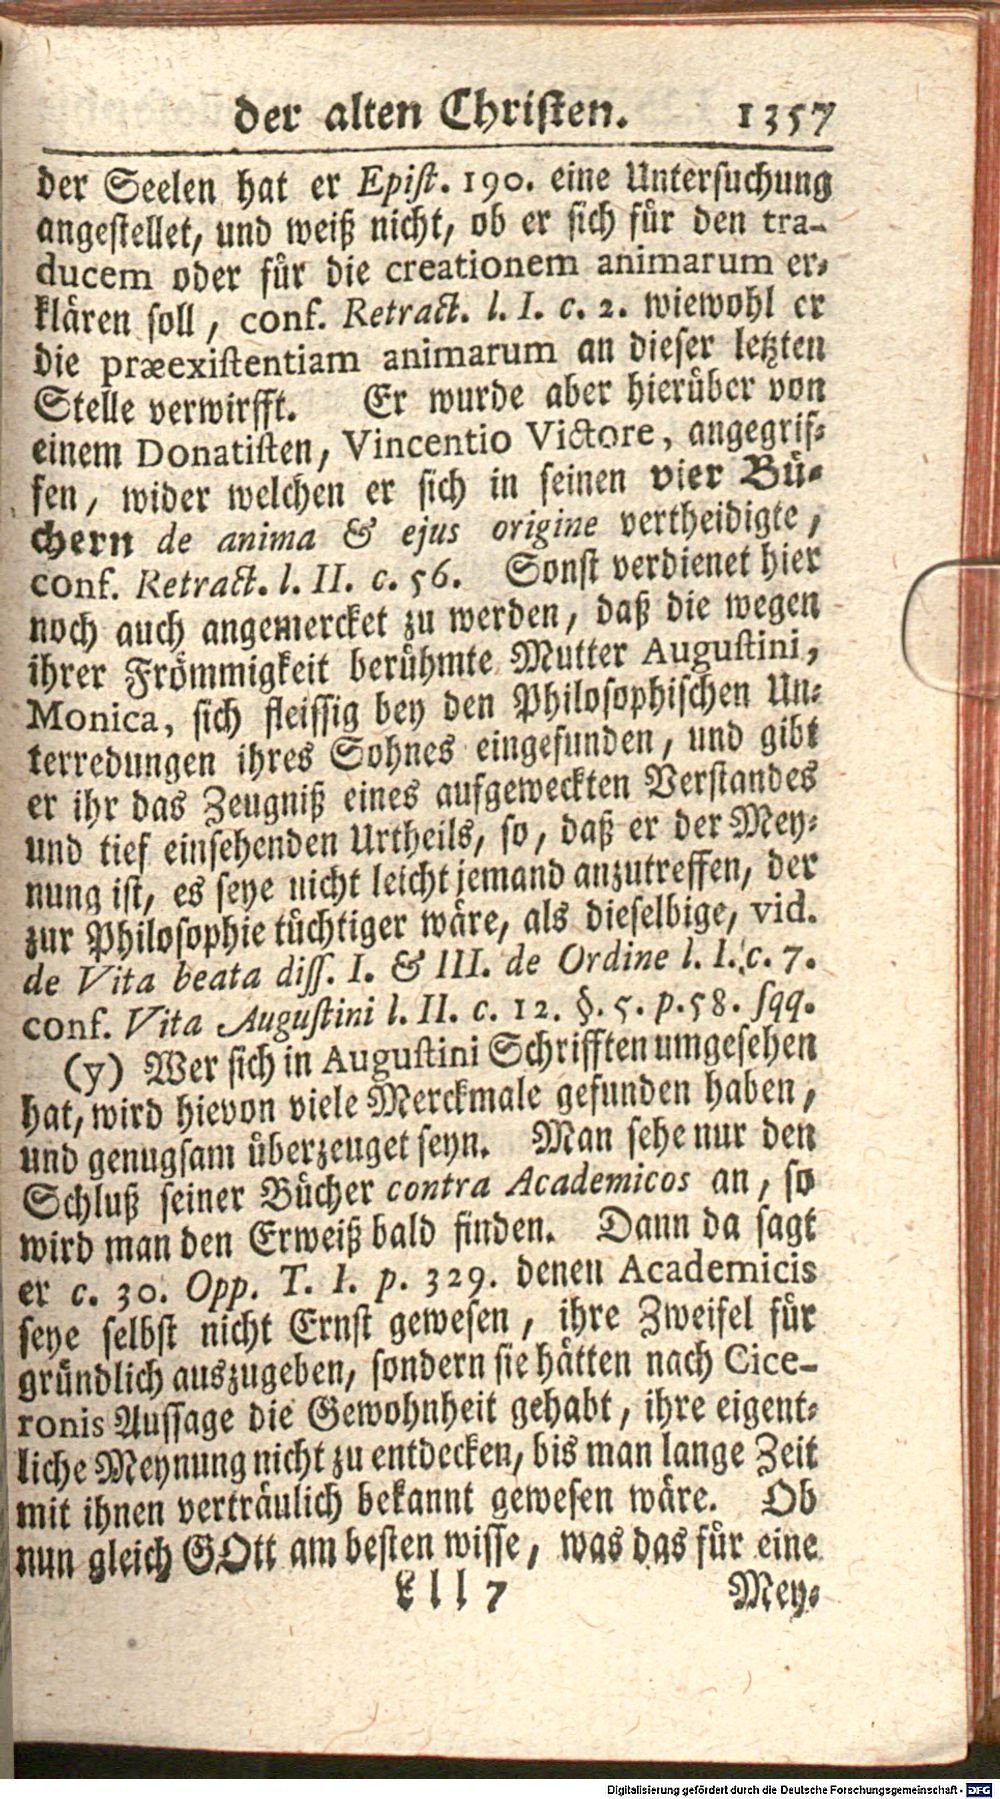 der alten Christen. 1357
der Seelen hat er Epist. 190. eine Untersuchung
angestellet, und weiß nicht, ob er sich für den tra-
ducem oder für die creationem animarum er-
klären soll, conf. Retract. l. I. c. 2. wiewohl er
die præexistentiam animarum an dieser letzten
Stelle verwirfft. Er wurde aber hierüber von
einem Donatisten, Vincentio Victore, angegrif-
fen, wider welchen er sich in seinen vier Bü-
chern de anima & ejus origine vertheidigte,
conf. Retract. l. II. c. 56. Sonst verdienet hier
noch auch angemercket zu werden, daß die wegen
ihrer Frömmigkeit berühmte Mutter Augustini,
Monica, sich fleissig bey den Philosophischen Un-
terredungen ihres Sohnes eingefunden, und gibt
er ihr das Zeugniß eines aufgeweckten Verstandes
und tief einsehenden Urtheils, so, daß er der Mey-
nung ist, es seye nicht leicht jemand anzutreffen, der
zur Philosophie tüchtiger wäre, als dieselbige, vid.
de Vita beata diss. I. & III. de Ordine l. I. c. 7.
conf. Vita Augustini l. II. c. 12. §. 5. p. 58. sqq.
(y) Wer sich in Augustini Schrifften umgesehen
hat, wird hievon viele Merckmale gefunden haben,
und genugsam überzeuget seyn. Man sehe nur den
Schluß seiner Bücher contra Academicos an, so
wird man den Erweiß bald finden. Dann da sagt
er c. 30. Opp. T. I. p. 329. denen Academicis
seye selbst nicht Ernst gewesen, ihre Zweifel für
gründlich auszugeben, sondern sie hätten nach Cice-
ronis Aussage die Gewohnheit gehabt, ihre eigent-
liche Meynung nicht zu entdecken, bis man lange Zeit
mit ihnen verträulich bekannt gewesen wäre. Ob
nun gleich GOtt am besten wisse, was das für eine
Lll 7 Mey-
Digitalisierung gefördert durch die Deutsche Forschungsgemeinschaft - DFG